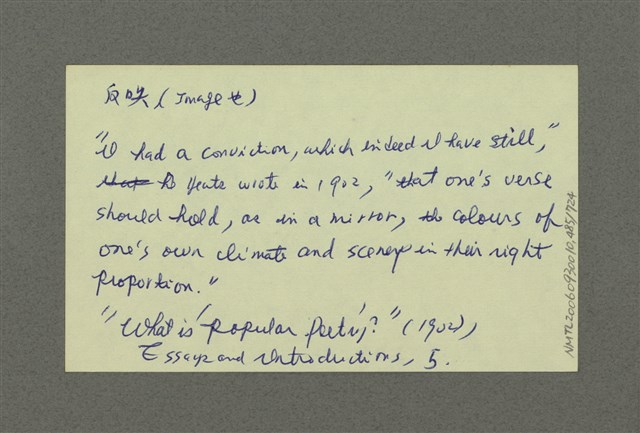 反映 (Image 也)
"I had a conviction, which indeed I have still,"
that Yeats wrote in 1902, "that one's verse
should hold, as in a mirror, the colours of
one's own climate and scenery in their right
proportion."
"What is 'Popular Poetry'?" (1902),
Essays and Introductions, 5.
NMTL20060930010.485/724